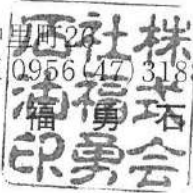 里町26
0956(47)318
福勇石
株式会
社福勇
石油印